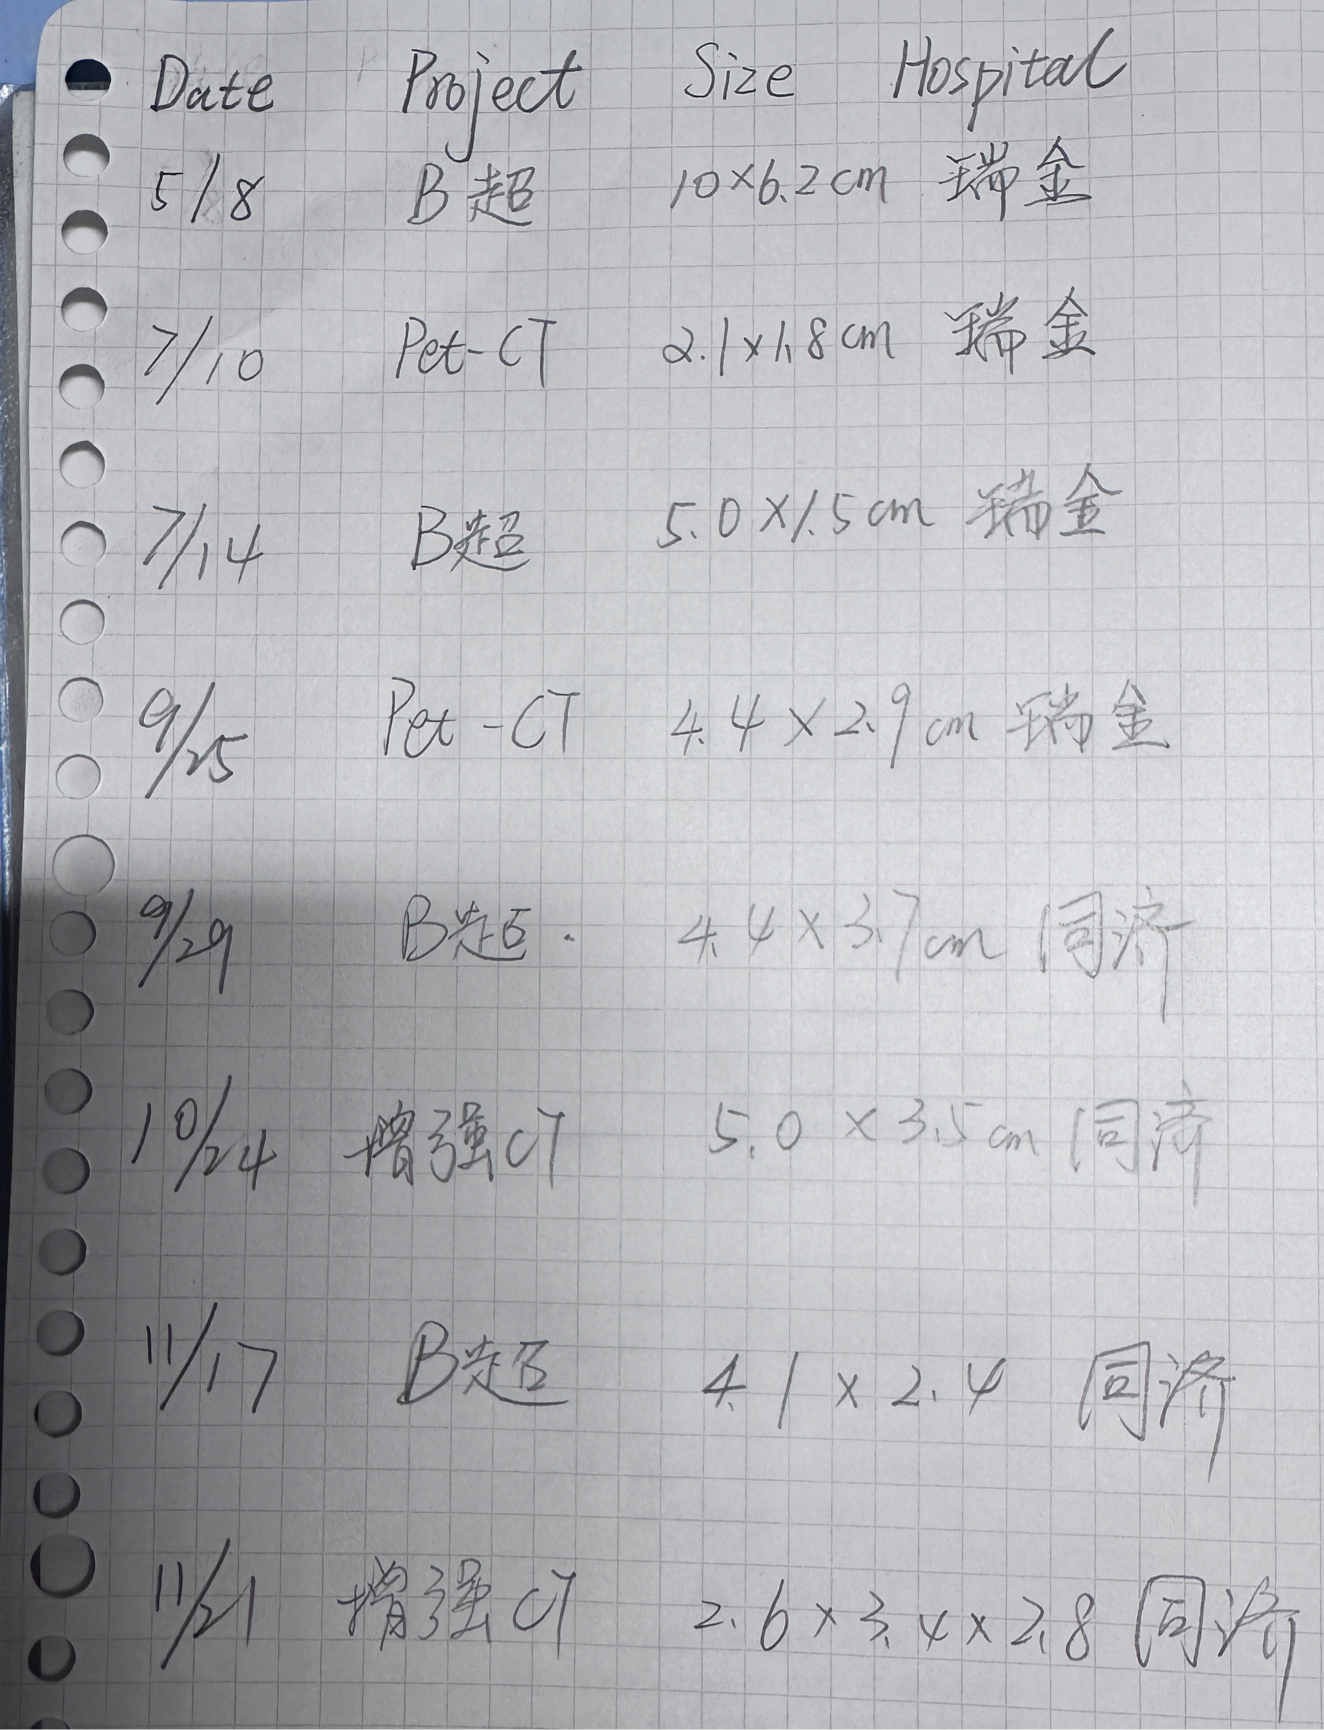 Date Project Size Hospital
5/8 B超 10×6.2cm 瑞金
7/10 Pet-CT 2.1×1.8cm 瑞金
7/14 B超 5.0×1.5cm 瑞金
9/25 Pet-CT 4.4×2.9cm 瑞金
9/29 B超. 4.4×3.7cm 同济
10/24 增强CT 5.0×3.5cm 同济
11/17 B超 4.1×2.4 同济
11/21 增强CT 2.6×3.4×2.8 同济